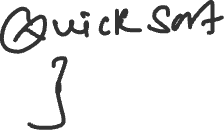 Quick Sort
}